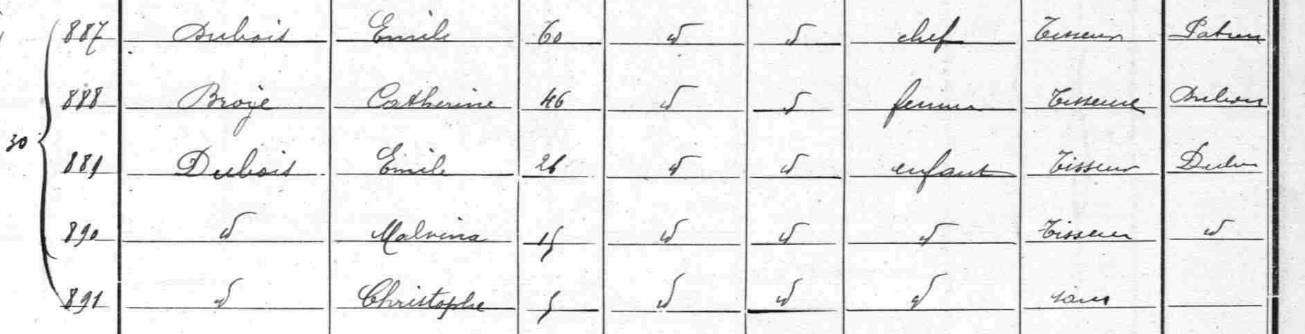 887 Dubois Emile 60 d d chef Tisseur Patron
30 888 Broye Catherine 46 d d femme Tisseuse Dubois
889 Dubois Emile 26 d d enfant Tisseur Dubois
890 d Malvina 15 d d d Tisseur d
891 d Christophe 5 d d d sans